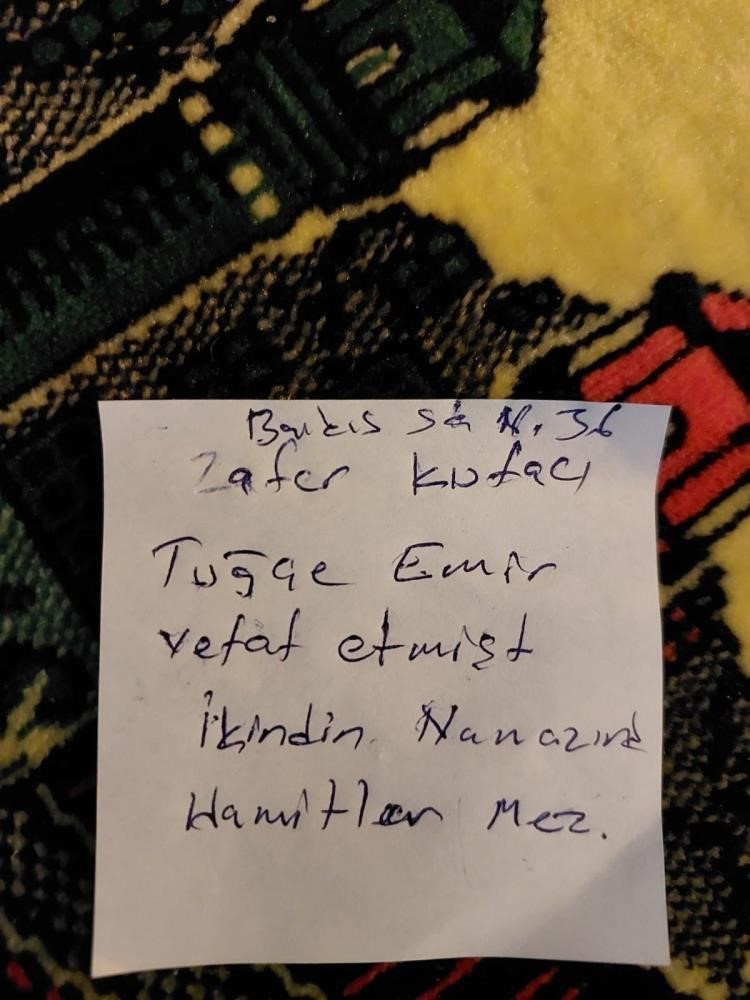 Sk N. 36
Zafer
Tuğçe Emir
vefat etmişt
İkindin Namazınd
Hamitler Mez.